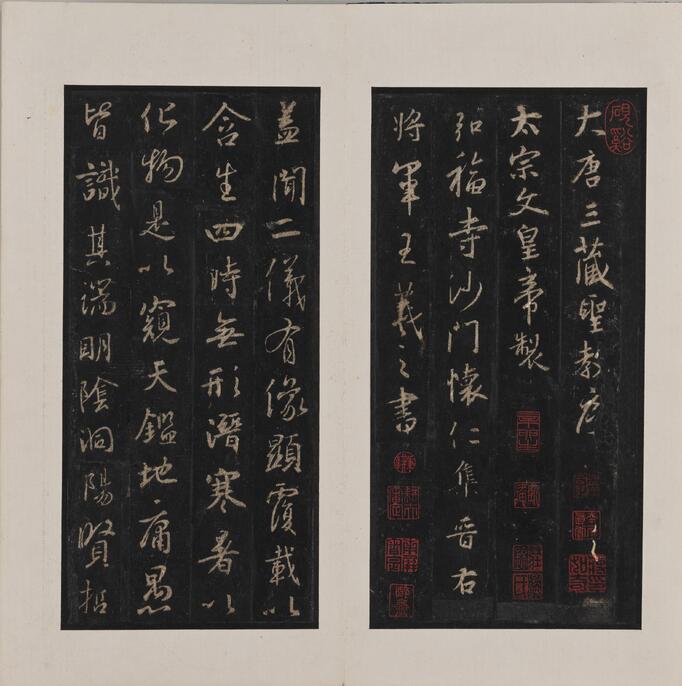 大唐三藏聖教序
太宗文皇帝製
弘福寺沙門懷仁集晉右
將軍王羲之書
蓋聞二儀有像顯覆載以
含生四時無形潛寒暑以
化物是以窺天鑑地庸愚
皆識其端明陰洞陽賢哲